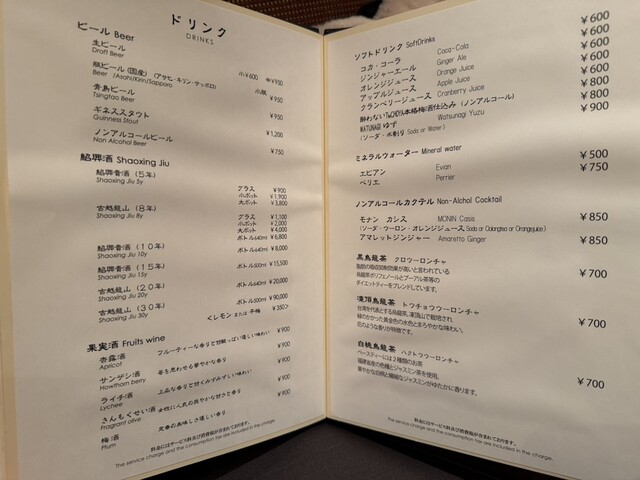 ドリンク
DRINKS
ビール Beer
生ビール 小¥600 中¥950
Draft Beer
瓶ビール(国産) (アサヒ・キリン・サッポロ) 小瓶
Beer /Asahi/Kirin/Sapporo ¥950
青島ビール ¥950
Tsingtao Beer
ギネススタウト ¥1,200
Guinness Stout
ノンアルコールビール ¥750
Non Alcohol Beer
Shaoxing Jiu
(5年) グラス ¥900
Shaoxing Jiu 5y 小ポット ¥1,900
大ポット ¥3,800
古越龍山 (8年) グラス ¥1,100
Shaoxing Jiu 8y 小ポット ¥2,000
大ポット ¥4,000
ボトル(640ml) ¥6,800
(10年) ボトル(640ml) ¥8,000
Shaoxing Jiu 10y
(15年) ボトル(500ml) ¥15,500
Shaoxing Jiu 15y
古越龍山 (20年) ボトル(640ml) ¥20,000
Shaoxing Jiu 20y
古越龍山 (30年) ボトル(500ml) ¥90,000
Shaoxing Jiu 30y <レモン または 干梅 ¥350>
果実酒 Fruits wine
杏露酒 フルーティーな香りと甘酸っぱい優しい味わい ¥900
Apricot
サンザシ酒 ¥900
Howthorn berry
ライチ酒 上品な香りと甘くみずみずしい味わい ¥900
Lychee
さんもくせい酒 女性に人気の爽やかな甘さと香り ¥900
Fragrant olive
梅酒 定番の美味しさ優しい香り ¥900
Plum
料金にはサービス料及び消費税が含まれております。
The service charge and the consumption tax are included in the charge.
ソフトドリンク SoftDrinks
コカ・コーラ Coca-Cola ¥600
ジンジャーエール Ginger Ale ¥600
オレンジジュース Orange Juice ¥600
アップルジュース Apple Juice ¥600
クランベリージュース Cranberry Juice ¥800
酔わないTWCHOYA本格梅酒仕込み (ノンアルコール) ¥800
WATUNAGI ゆず Watsunagi Yuzu ¥900
(ソーダ・水割り Soda or Water)
ミネラルウォーター Mineral water
エビアン Evian ¥500
ペリエ Perrier ¥750
ノンアルコールカクテル Non-Alchol Cocktail
モナン カシス MONIN Casis ¥850
(ソーダ・ウーロン・オレンジジュース Soda or Oolongtea or Orangejuice)
アマレットジンジャー Amaretto Ginger ¥850
黒烏龍茶 クロウーロンチャ
脂肪の吸収抑制効果が高いと言われている ¥700
烏龍茶ポリフェノールとプーアル茶等の
ダイエットティーをブレンドしています。
凍頂烏龍茶 トウチョウウーロンチャ
台湾を代表とする烏龍茶。凍頂山で栽培され
緑のかかった黄金色の水色とまろやかな味わい、 ¥700
花のような香りが特徴です。
白桃烏龍茶 ハクトウウーロンチャ
ベースティーには2種類のお茶
福建省産の色種とジャスミン茶を使用。 ¥700
華やかな白桃と繊細なジャスミンがゆたかに香ります。
料金にはサービス料及び消費税が含まれております。
The service charge and the consumption tax are included in the charge.